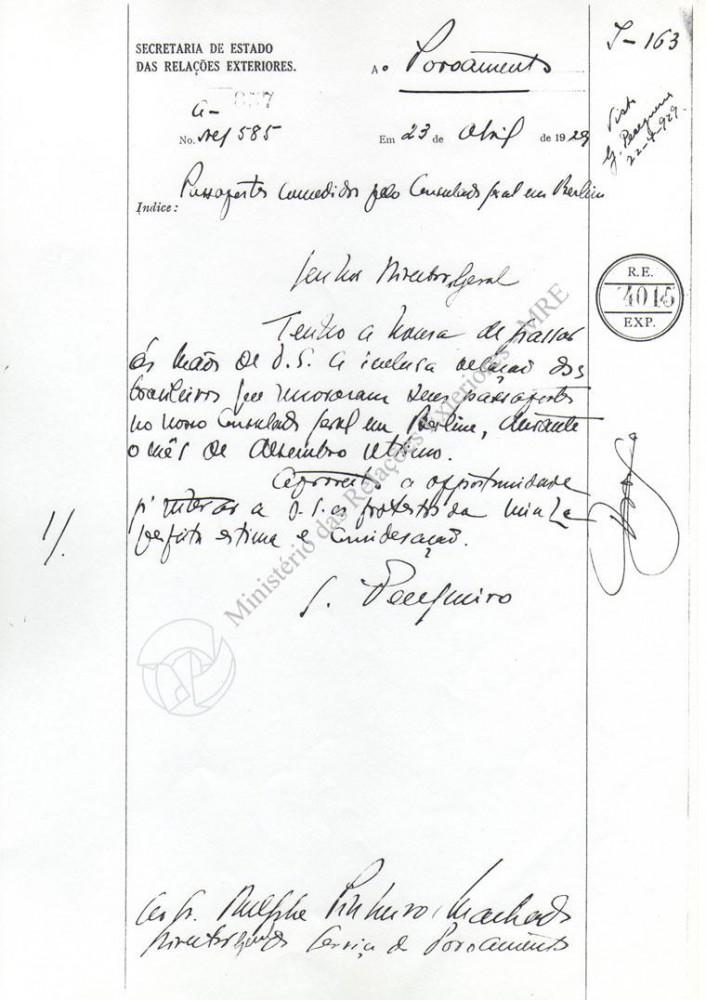 SECRETARIA DE ESTADO
DAS RELAÇÕES EXTERIORES.
Ao Povoamento
J-163
No. 585
Em 23 de Abril de 1929
Visto
G. Pecegueiro
22-4-929.
Indice: Passaportes concedidos pelo Consulado Geral em Berlim
Senhor Director Geral
R. E.
4015
EXP.
Tenho a honra de passar
ás mãos de V.S. a inclusa relação dos
brasileiros que renovaram seus passaportes
no nosso Consulado Geral em Berlim, durante
o mês de dezembro ultimo.
Aproveito a opportunidade
p/ a V.S. os protestos da minha
perfeita estima e consideração.
1/.
G. Pecegueiro
Ministério das Relações Exteriores - MRE
Ao Sr. Dulphe Pinheiro Machado
Director Geral do Serviço de Povoamento